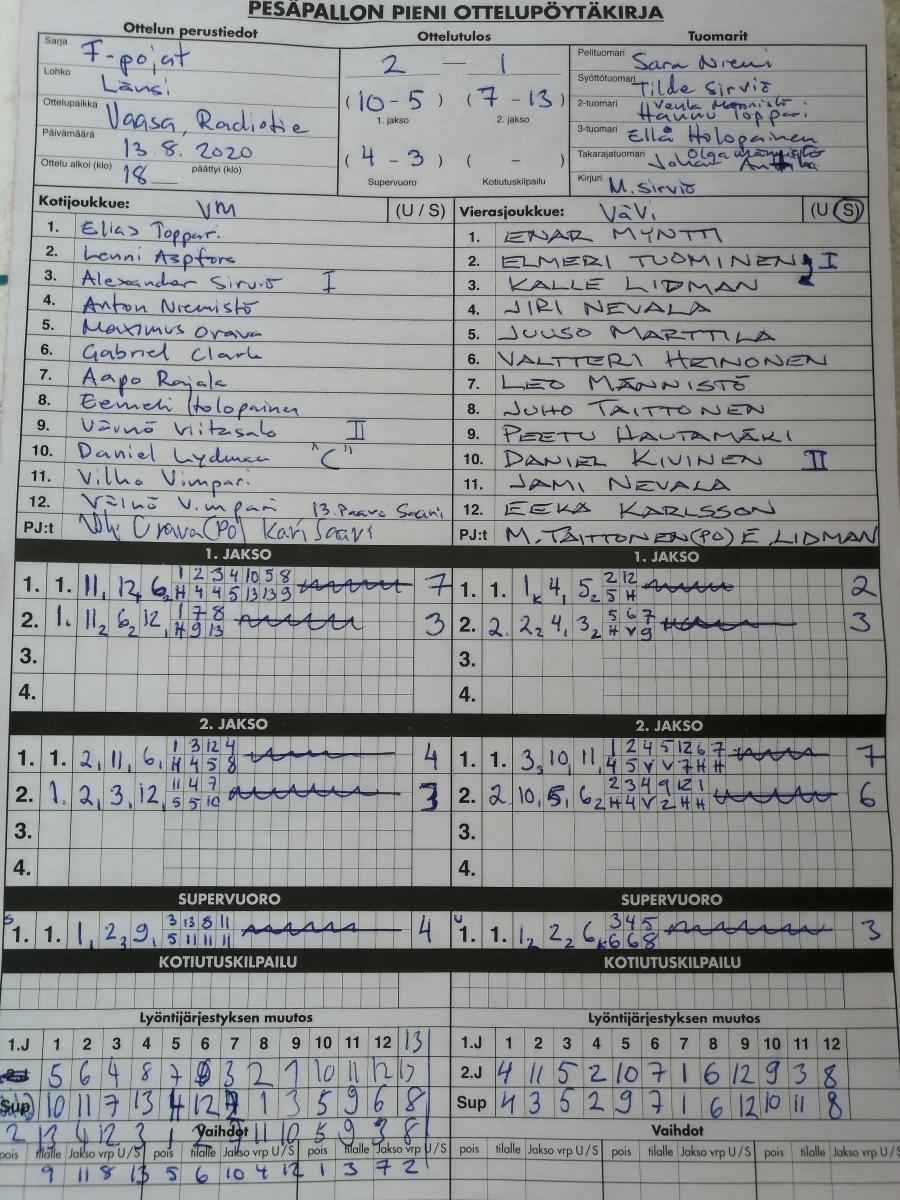 PESÄPALLON PIENI OTTELUPÖYTÄKIRJA
Ottelun perustiedot
Sarja F-pojat
Lohko Länsi
Ottelupaikka Vaasa, Radiotie
Päivämäärä 13.8. 2020
Ottelu alkoi (klo) 18 päättyi (klo)
Ottelutulos
2 — 1
( 10 - 5 ) ( 7 - 13 )
1. jakso 2. jakso
( 4 - 3 ) ( - )
Supervuoro Kotiutuskilpailu
Tuomarit
Pelituomari Sara Niemi
Syöttötuomari Tilde Sirviö
2-tuomari Hannu Toppari
3-tuomari Ella Holopainen
Takarajatuomari
Kirjuri M. Sirviö
Kotijoukkue: VM (U / S)
1. Elias Toppari
2. Lenni Aspfors
3. Alexander Sirviö I
4. Anton Niemistö
5. Maximus Orava
6. Gabriel Clark
7. Aapo Rajala
8. Eemeli Holopainen
9. Väinö Viitasalo II
10. Daniel Lydman "C"
11. Vilho Vimpari
12. Väinö Vimpari 13. Paavo Saari
PJ:t Orava (PO) Kari Saari
Vierasjoukkue: VäVi (U / S)
1. ENAR MYNTTI
2. ELMERI TUOMINEN I
3. KALLE LIDMAN
4. JIRI NEVALA
5. JUUSO MARTTILA
6. VALTTERI HEINONEN
7. LEO MÄNNISTÖ
8. JUHO TAITTONEN
9. PEETU HAUTAMÄKI
10. DANIEL KIVINEN II
11. JAMI NEVALA
12. EEKA KARLSSON
PJ:t M. TAITTONEN (PO) E. LIDMAN
1. JAKSO 1. JAKSO
1 2 3 4 10 5 8 2 12
1. 1. 11, 12, 6, H 4 4 5 13 13 9 7 1. 1. 1, 4, 5, 5 H 2
1 7 8 5 6 7
2. 1. 11, 6, 12, H 9 13 3 2. 2. 2, 4, 3, H V 9 3
3. 3.
4. 4.
2. JAKSO 2. JAKSO
1 3 12 4 1 2 4 5 12 6 7
1. 1. 2, 11, 6, H 4 5 8 4 1. 1. 3, 10, 11, 4 5 V V 7 H H 7
11 4 7 2 3 4 9 12 1
2. 1. 2, 3, 12, 5 5 10 3 2. 2 10, 5, 6, H 4 V 2 H H 6
3. 3.
4. 4.
SUPERVUORO SUPERVUORO
3 13 8 11 3 4 5
S 1. 1. 1, 2, 9, 5 11 11 11 4 U 1. 1. 1, 2, 6, 6 6 8 3
KOTIUTUSKILPAILU KOTIUTUSKILPAILU
Lyöntijärjestyksen muutos Lyöntijärjestyksen muutos
1.J 1 2 3 4 5 6 7 8 9 10 11 12 13 1.J 1 2 3 4 5 6 7 8 9 10 11 12
5 6 4 8 7 9 3 2 1 10 11 12 13 2.J 4 11 5 2 10 7 1 6 12 9 3 8
Sup 10 11 7 13 4 12 2 1 3 5 9 6 8 Sup 4 3 5 2 9 7 1 6 12 10 11 8
2 13 4 12 3 1 2 11 10 5 9 8
Vaihdot Vaihdot
pois tilalle Jakso vrp U/S pois tilalle Jakso vrp U/S pois tilalle Jakso vrp U/S pois tilalle Jakso vrp U/S pois tilalle Jakso vrp U/S pois tilalle Jakso vrp U/S
9 11 8 13 5 6 10 4 12 1 3 7 2